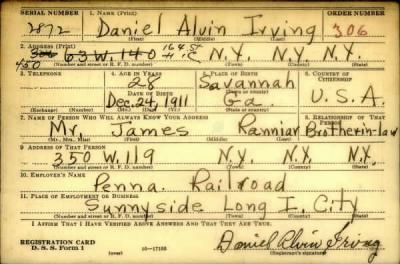 SERIAL NUMBER 1. NAME (Print) ORDER NUMBER
2872 Daniel Alvin Irving 306
(First) (Middle) (Last)
2. ADDRESS (Print)
63 W. 140 N.Y. N.Y. N.Y.
450 164 St
(Number and street or R. F. D. number) (Town) (County) (State)
3. TELEPHONE 4. AGE IN YEARS 5. PLACE OF BIRTH 6. COUNTRY OF CITIZENSHIP
28 Savannah
DATE OF BIRTH (Town or county)
Dec. 24, 1911 Ga U.S.A.
(Exchange) (Number) (Mo.) (Day) (Yr.) (State or country)
7. NAME OF PERSON WHO WILL ALWAYS KNOW YOUR ADDRESS 8. RELATIONSHIP OF THAT PERSON
Mr. James Ranniar Brother-in-law
(Mr., Mrs., Miss) (First) (Middle) (Last)
9. ADDRESS OF THAT PERSON
350 W. 119 N.Y. N.Y. N.Y.
(Number and street or R. F. D. number) (Town) (County) (State)
10. EMPLOYER'S NAME
Penna. Railroad
11. PLACE OF EMPLOYMENT OR BUSINESS
Sunnyside Long I. City
(Number and street or R. F. D. number) (Town) (County) (State)
I AFFIRM THAT I HAVE VERIFIED ABOVE ANSWERS AND THAT THEY ARE TRUE.
REGISTRATION CARD
D. S. S. Form 1 (over) 16—17105 Daniel Alvin Irving
(Registrant's signature)